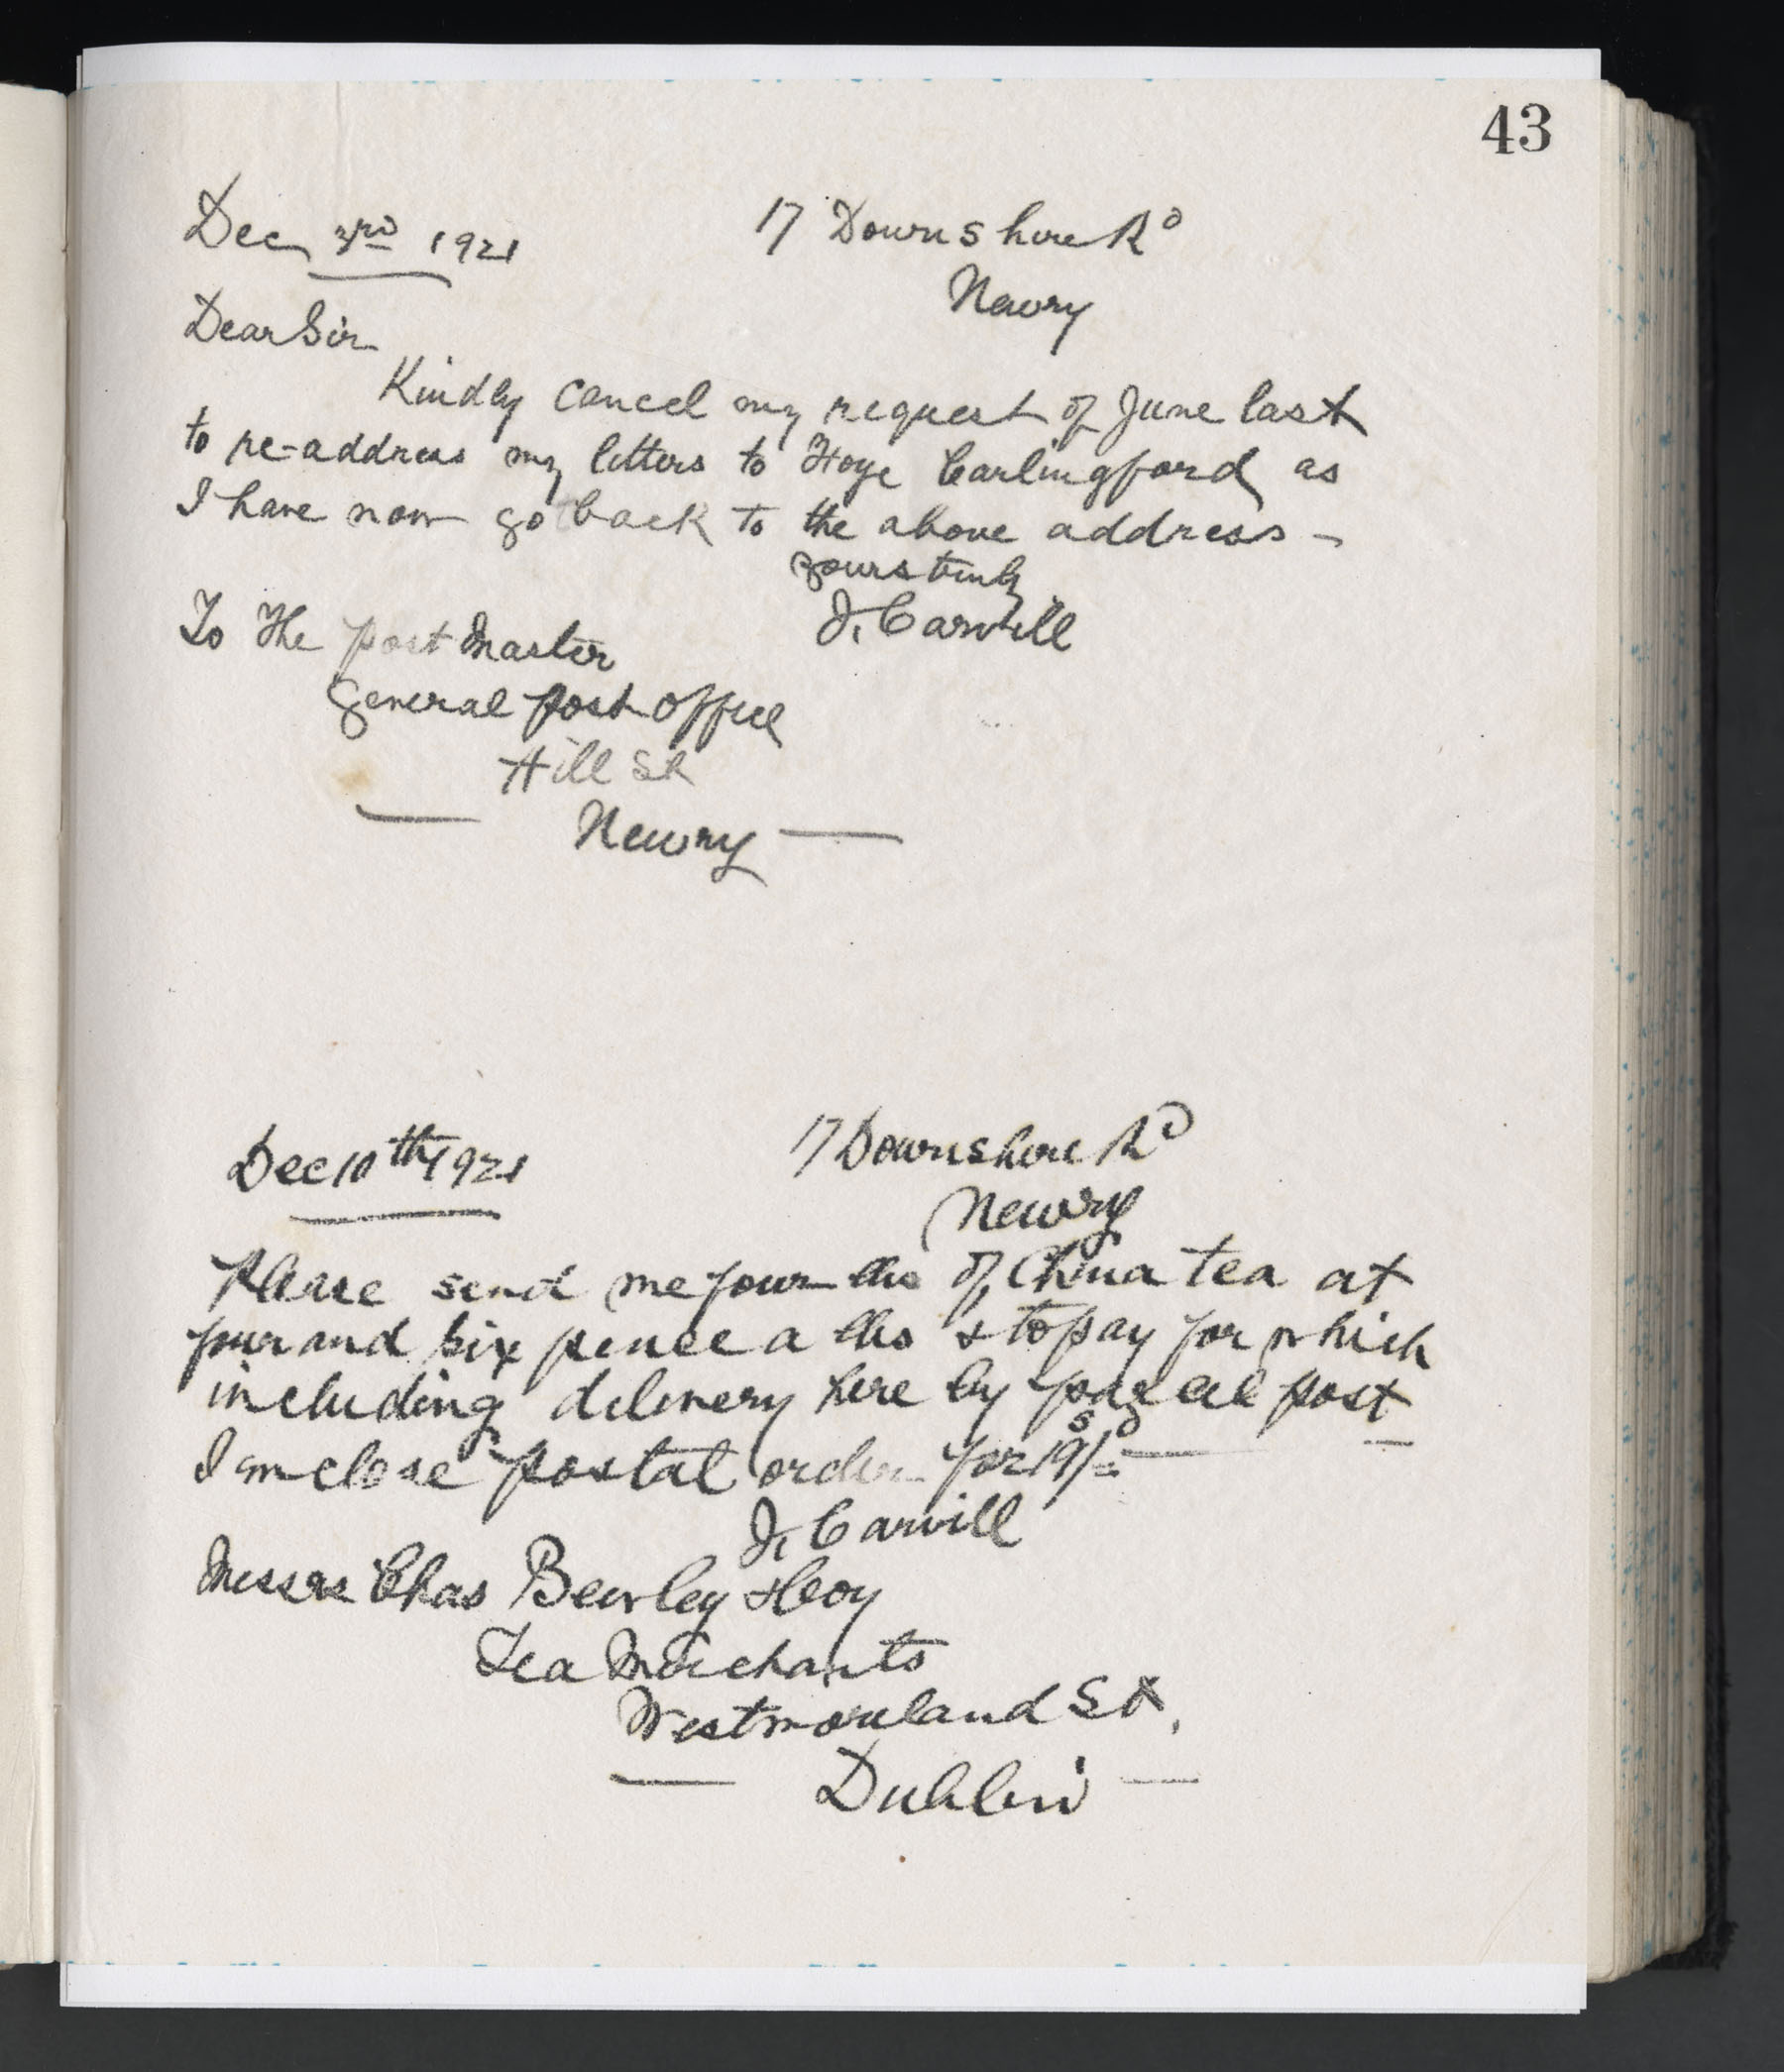 43
Dec 3rd 1921 17 Downshire Rd
Newry
Dear Sir
Kindly cancel my request of June last
to re-address my letters to Carlingford as
I have now got back to the above address -
yours truly
J. Carvill
To The post Master
General post office
Hill St
Newry
Dec 10th 1921 17 Downshire Rd
Newry
Please send me four lbs of China tea at
four and six pence a lbs & to pay for which
including delivery here by parcel post
I inclose postal order for 19s/-
J. Carvill
Messrs Chas Bewley & Coy
Tea Merchants
Westmoreland St,
Dublin